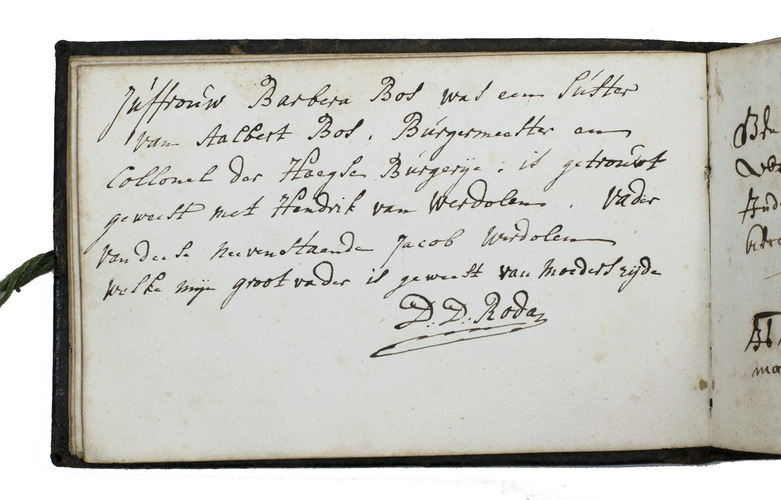 Júffroúw Barbera Bos was een Súster
van Aalbert Bos, Búrgermeester en
Collonel der Haegse Búrgerije: is getroúwt
geweest met Hendrik van Werdolen. Vader
van deese nevenstaende Jacob Werdolen
welke mijn grootvader is geweest van moeders zijde
D. D. Roda